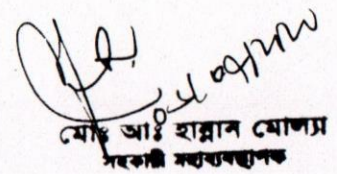 মোঃ আঃ হান্নান মোল্লা
সহকারী মহাব্যবস্থাপক